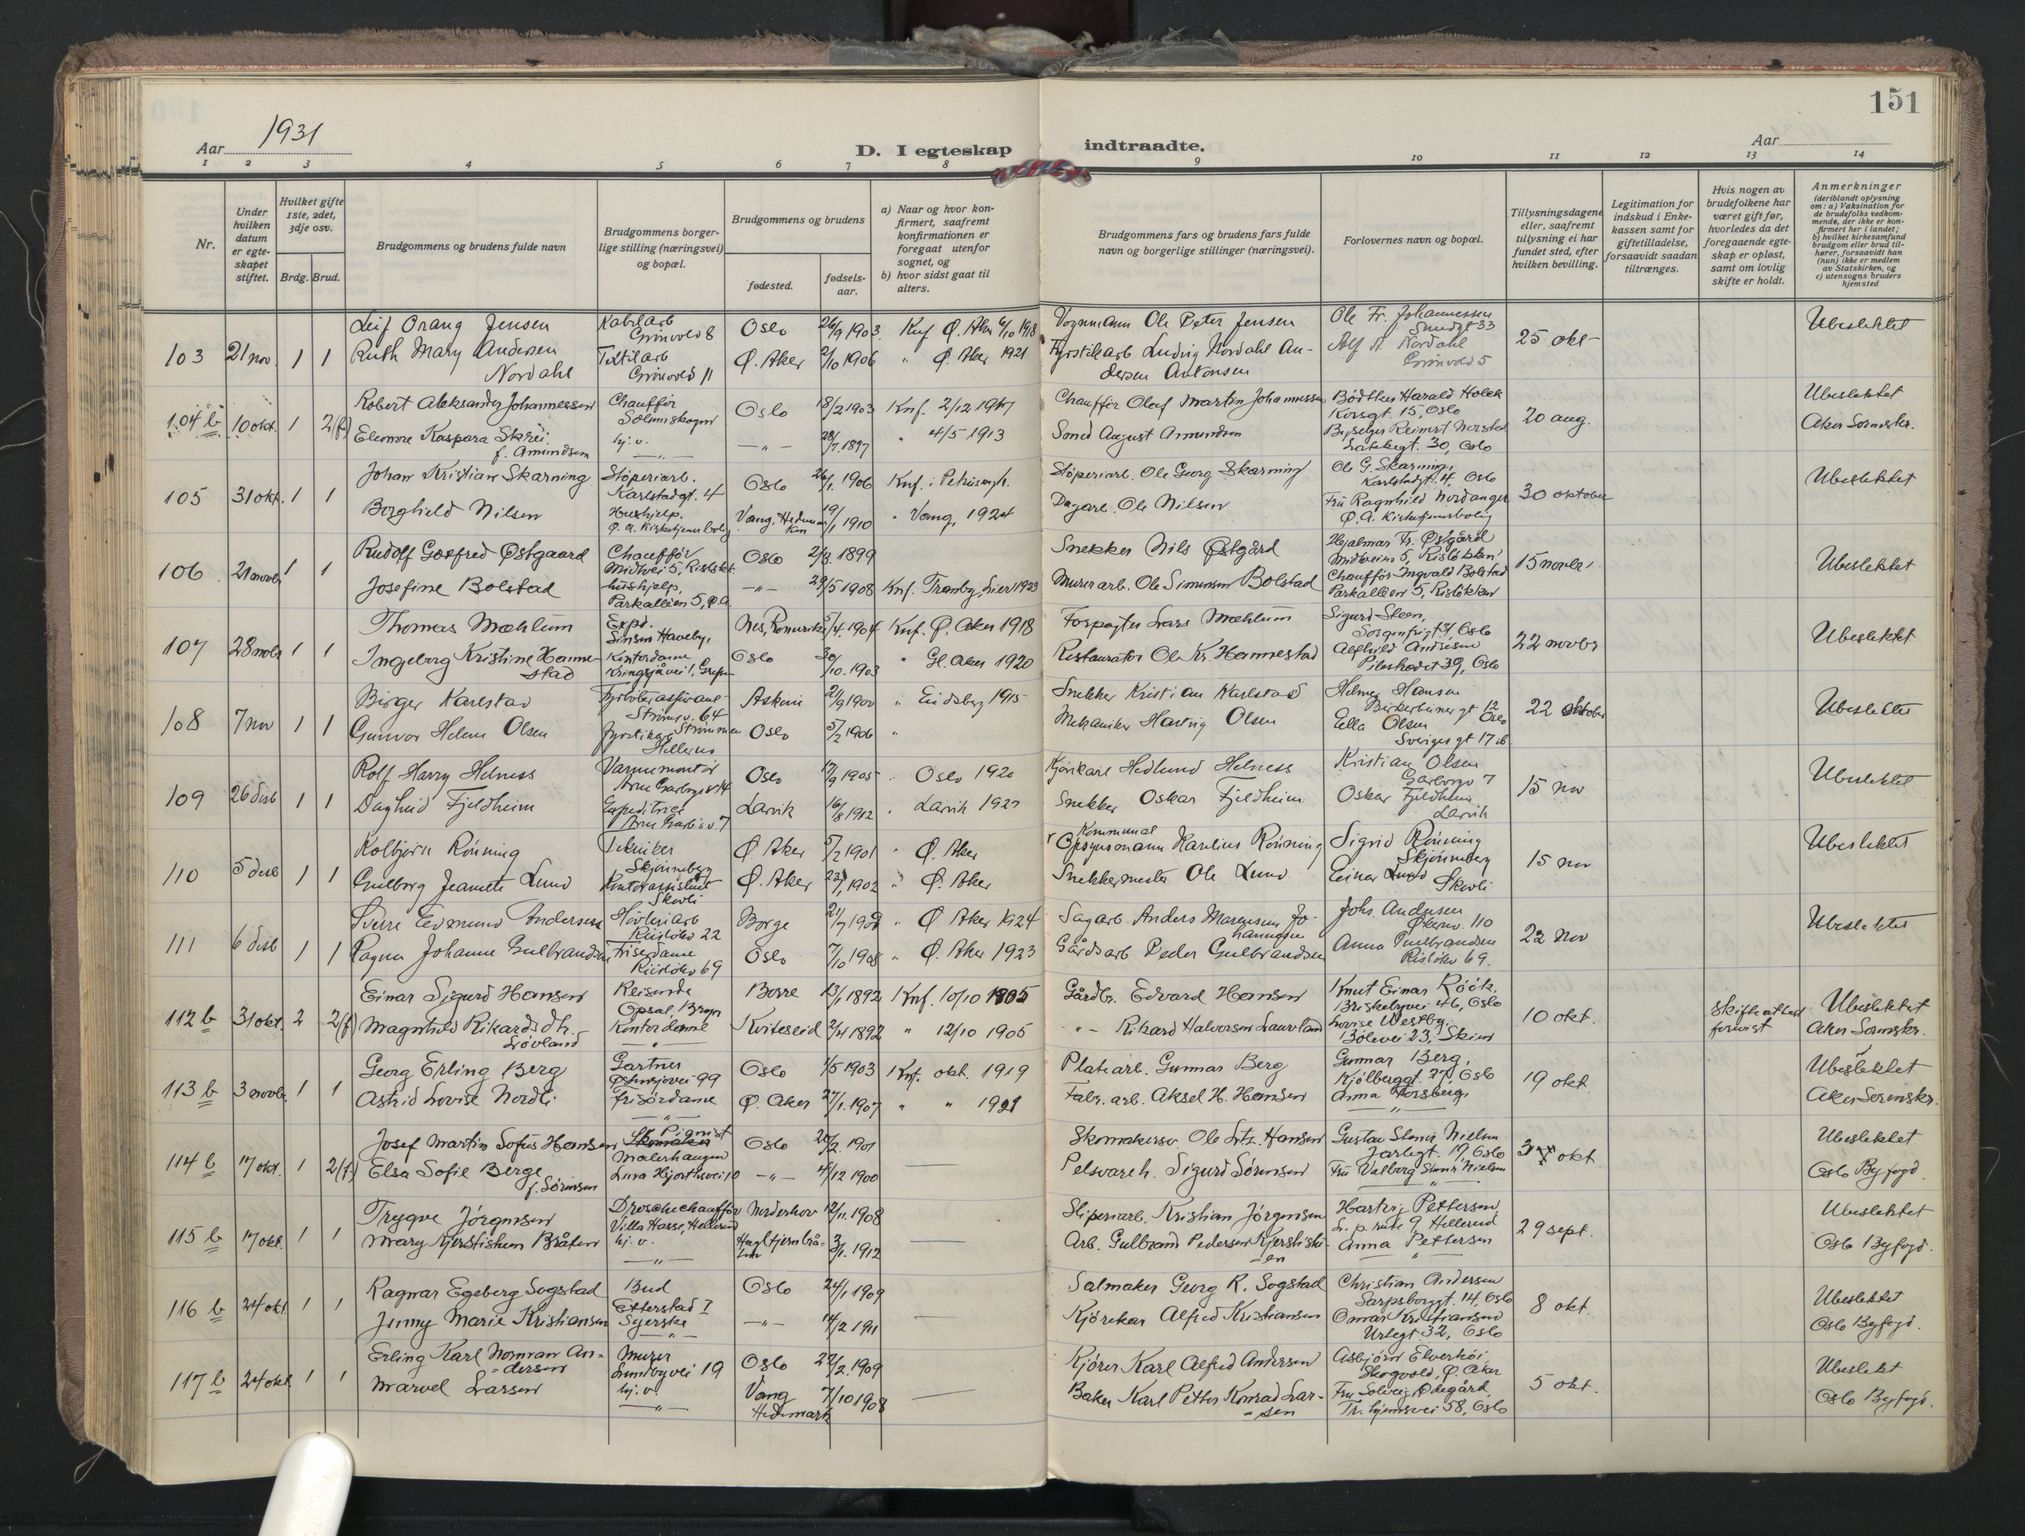 151
Aar 1931
D. I egteskap indtraadte.
Aar
1 2 3 4 5 6 7 8 9 10 11 12 13 14
Nr.
Under hvilken datum er egteskapet stiftet.
Hvilket gifte 1ste, 2det, 3dje osv.
Brdg. Brud.
Brudgommens og brudens fulde navn
Brudgommens borgerlige stilling (næringsvei) og bopæl.
Brudgommens og brudens
fødested.
fødselsaar.
a) Naar og hvor konfirmert, saafremt konfirmationen er foregaat utenfor sognet, og
b) hvor sidst gaat til alters.
Brudgommens fars og brudens fars fulde navn og borgerlige stillinger (næringsvei).
Forlovernes navn og bopæl.
Tillysningsdagene eller, saafremt tillysning ei har fundet sted, efter hvilken bevilling.
Legitimation for indskud i Enkekassen samt for giftetilladelse, forsaavidt saadan tiltrænges.
Hvis nogen av brudefolkene har været gift før, hvorledes da det foregaaende egteskap er opløst, samt om lovlig skifte er holdt.
Anmerkninger (deriblandt oplysning om: a) Vaksination for de brudefolks vedkommende, der ikke er konfirmert her i landet; b) hvilket kirkesamfund brudgom eller brud tilhører, forsaavidt han (hun) ikke er medlem av Statskirken, og c) utensogns bruders hjemsted
103 21 nov. 1 1
Leif Orang Jensen Kabelarb Grönvold 8 Oslo 26/9 1903. Knf Ø. Aker 6/10 1918 Vognmann Ole Peter Jensen Ole Fr. Johannessen 33 25 okt Ubeslektet
Ruth Mary Andersen Nordahl Tekstilarb Grönvold 11 Ø. Aker 2/10 1906 " Ø. Aker 1921 Fyrstikarb Ludvig Nordahl Andersen Antonsen Alf A. Nordahl Grönvold 5
104 b 10 okt. 1 2(f)
Robert Aleksander Johannessen Chauffør Solemskogen Oslo 18/2 1903 Knf. 2/12 1917 Chauffør Olaf Martin Johannessen Bødtker Harald Holck Korsgt. 15, Oslo 20 aug. Ubeslektet
Elenore Kaspara Skrei, f. Amundsen hj. v. — " — 28/7 1897 " 4/5 1913 Smed August Amundsen Reinert Norstad 30, Oslo Aker Sorenskr.
105 31 okt. 1 1
Johan Kristian Skarning Støperiarb. Karlstadgt. 4 Oslo 26/1. 1906 Knf. i Petrusmgh. Støperiarb. Ole Georg Skarning Ole G. Skarning, Karlstadgt. 4, Oslo 30 oktober Ubeslektet
Borghild Nilsen Hushjelp. Ø. A. Kirketjenerbolig Vang, Hedmarken 19/1 1910 " Vang, 1924 Dagarb. Ole Nilsen Frü Ragnhild Nordanger Ø. A. Kirketjenerbolig
106 21 novbr 1 1
Rudolf Gotfred Østgaard Chauffør Midtvei 5, Risløkk. Oslo 2/3. 1899 Snekker Nils Østgård Hjalmar Fr. Østgård Midtveien 5, Risløkken 15 novbr Ubeslektet
Josefine Bolstad hushjelp, Parkalléen 5, Ø. A. — " — 29/5 1908 Knf. Tranby, Lier 1923 Murerarb. Ole Simensen Bolstad Chauffør Ingvald Bolstad Parkalléen 5, Risløkken
107 28 novbr 1 1
Thomas Mæhlum Expd. Sinsen Haveby, Nes, Romerike 5/4. 1904 Knf. Ø. Aker 1918 Forpagter Lars Mæhlum Sigurd Steen, Sorgenfrigt 31, Oslo 22 novbr Ubeslektet
Ingeborg Kristine Hannestad Kontordame Kringsjåvei 1, Grefsen Oslo 30/10. 1903 " Gl. Aker 1920 Restauratør Ole Kr. Hannestad Alfhild Andresen Pilestredet 39, Oslo
108 7 nov 1 1
Birger Karlstad Strømsv. 64 Askim 21/9 1900 " Eidsberg 1915 Snekker Kristian Karlstad Helmer Hansen Birkebeinergt 12 Oslo 22 oktober Ubeslektet
Gunvor Helene Olsen Hellerud Oslo 5/2 1906 " Mekaniker Hartvig Olsen Ella Olsen Sverigesgt 17 b.
109 26 desb 1 1
Rolf Harry Helness Varmemontør Arne Garborgs v. 14 Oslo 17/9 1905 " Oslo 1920 Kjørekarl Hedlund Helness Kristian Olsen Garborgv 7 15 nov Ubeslektet
Daghild Fjeldheim Expeditrise Arne Garb. v. 7 Larvik 16/8 1912 " Larvik 1927 Snekker Oskar Fjeldheim Oskar Fjeldheim Larvik
110 5 desb 1 1
Kolbjørn Rönning Tekniker Skjönneberg Ø. Aker 5/2 1901 " Ø. Aker Kommunal Opsynsmann Karelius Rönning Sigrid Rönning Skjönneberg 15 nov Ubeslektet
Gulborg Jeanette Lund Kontorassistent Skovli Ø. Aker 23/1 1902 " Ø. Aker Snekkermester Ole Lund Einar Lund Skovli
111 6 desb 1 1
Sverre Edmund Andersen Høvleriarb Risløkv 22 Borge 21/7 1902 " Ø. Aker 1924 Sagarb. Anders Marensius Johannesen Johs. Andersen Økernv. 110 22 nov Ubeslektet
Ragna Johanne Gulbrandsen Friserdame Risløkv 69 Oslo 7/10 1908 " Ø. Aker 1923 Gårdsarb Peder Gulbrandsen Anna Gulbrandsen Risløkv 69.
112 b 31 okt. 2 2(f)
Einar Sigurd Hansen Reisende Opsal, Bryn Borre 13/1 1892 Knf. 10/10 1905 Gårdbr. Edvard Hansen Knut Einar Röök. Briskebyvei 46, Oslo 10 okt. Skifteattest forevist Ubeslektet
Magnhild Rikardsdtr. Løvland Kontordame — " — Kviteseid 2/4 1892 " 12/10 1905 — " — Rikard Halvorsen Lauvland Lovise Westby, Bølevei 23, Skien Aker Sorenskr.
113 b 3 novbr. 1 1
Georg Erling Berg Gartner Østensjøvei 99 Oslo 1/5 1903 Knf. okt. 1919 Platearb. Gunnar Berg Gunnar Berg, Kjølberggt. 27, Oslo 19 okt. Ubeslektet
Astrid Lovise Nordli Frisørdame — " — Ø. Aker 27/1. 1907 " " 1921 Fabr. arb. Aksel H. Hansen Anna Thorsberg, — " — Aker Sorenskr.
114 b 17 okt. 1 2(f)
Josef Martin Sofus Hansen Malerhaugen Oslo 20/2. 1901 — Skomakersv Ole Lritz. Hansen Gustav Stener Nielsen Jarlegt. 17, Oslo okt Ubeslektet
Elsa Sofie Berge f. Sørensen Lina Hjorthsvei 10 — " — 4/12 1900 Pelsvareh. Sigurd Sørensen Fru Valborg Stener Nielsen — " — Oslo Byfogd.
115 b 17 okt. 1 1
Trygve Jörgensen Droschechauffør Villa Hasse, Hellerud Norderhov 12/11. 1908 — Sliperiarb. Kristian Jörgensen Hartvig Pettersen, L. p. rute 9 Hellerud 29 sept. Ubeslektet
Mary Kjerstistuen Bråten hj. v. — " — 3/1. 1912 Arb. Gulbrand Pedersen Kjerstistuen Anna Pettersen — " — Oslo Byfogd.
116 b 24 okt. 1 1
Ragnar Egeberg Sogstad Bud Etterstad I Oslo 24/1 1909 — Salmaker Georg R. Sogstad Christian Andersen Sarpsborggt. 14, Oslo 8 okt. Ubeslektet
Jenny Marie Kristiansen Syerske — " — — " — 14/2 1911 Kjørekar Alfred Kristiansen Omar Kristiansen Urtegt. 32, Oslo Oslo Byfogd.
117 b 24 okt 1 1
Erling Karl Norman Andersen Murer Lundbyvei 19 Oslo 22/2. 1909 — Kjører Karl Alfred Andersen Asbjørn Elverhöi, Skogvold, Ø. Aker 5 okt. Ubeslekt
Marvel Larsen hj. v. — " — Vang Hedemark 7/10 1908 Baker Karl Petter Konrad Larsen Fru Solveig Ødegård, Tr.hjemsvei 58, Oslo Oslo Byfogd.